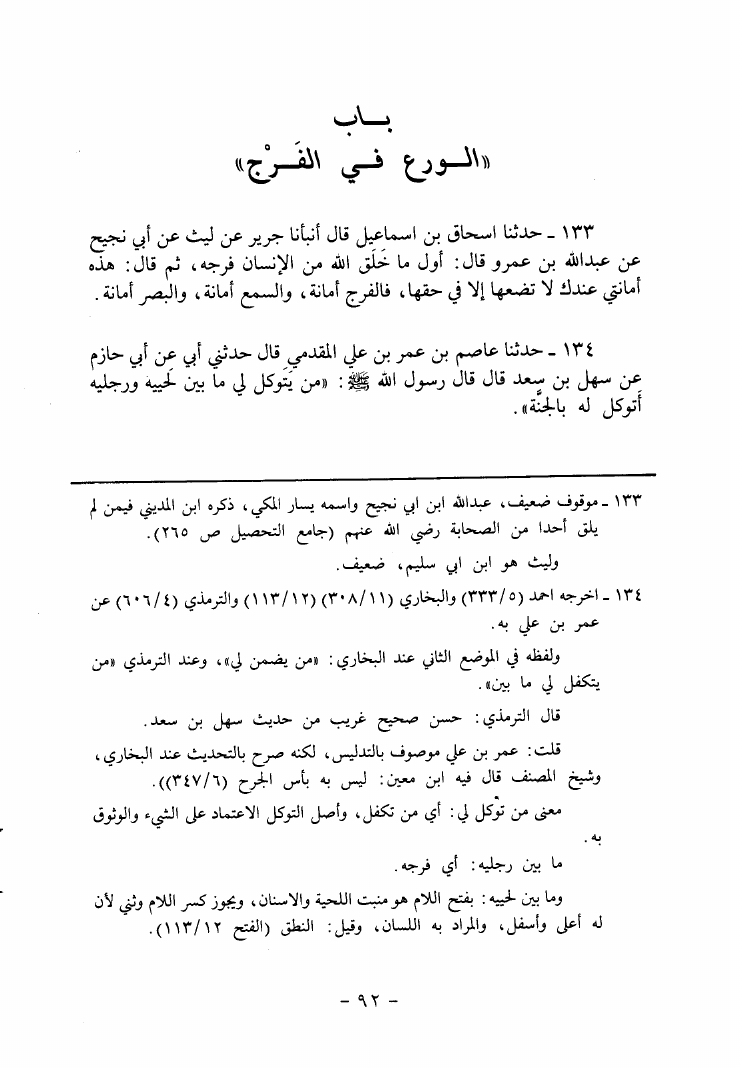 بـاب
«الـورع فـي الفَـرْج»
١٣٣ ـ حدثنا اسحاق بن اسماعيل قال أنبأنا جرير عن ليث عن أبي نجيح
عن عبدالله بن عمرو قال: أول ما خَلَق الله من الإنسان فرجه، ثم قال: هذه
أمانتي عندك لا تضعها إلا في حقها، فالفرج أمانة، والسمع أمانة، والبصر أمانة.
١٣٤ ـ حدثنا عاصم بن عمر بن علي المقدمي قال حدثني أبي عن أبي حازم
عن سهل بن سعد قال قال رسول الله ﷺ: «من يَتَوكل لي ما بين لَحييه ورجليه
أَتوكل له بالجنَّة».
١٣٣ ـ موقوف ضعيف، عبدالله ابن ابي نجيح واسمه يسار المكي، ذكره ابن المديني فيمن لم
يلق أحدا من الصحابة رضي الله عنهم (جامع التحصيل ص ٢٦٥).
وليث هو ابن ابي سليم، ضعيف.
١٣٤ ـ اخرجه احمد (٣٣٣/٥) والبخاري (٣٠٨/١١) (١١٣/١٢) والترمذي (٦٠٦/٤) عن
عمر بن علي به.
ولفظه في الموضع الثاني عند البخاري: «من يضمن لي»، وعند الترمذي «من
يتكفل لي ما بين».
قال الترمذي: حسن صحيح غريب من حديث سهل بن سعد.
قلت: عمر بن علي موصوف بالتدليس، لكنه صرح بالتحديث عند البخاري،
وشيخ المصنف قال فيه ابن معين: ليس به بأس الجرح (٣٤٧/٦)).
معنى من توكل لي: أي من تكفل، وأصل التوكل الاعتماد على الشيء والوثوق
به.
ما بين رجليه: أي فرجه.
وما بين لحييه: بفتح اللام هو منبت اللحية والاسنان، ويجوز كسر اللام وثني لأن
له أعلى وأسفل، والمراد به اللسان، وقيل: النطق (الفتح ١١٣/١٢).
- ٩٢ -